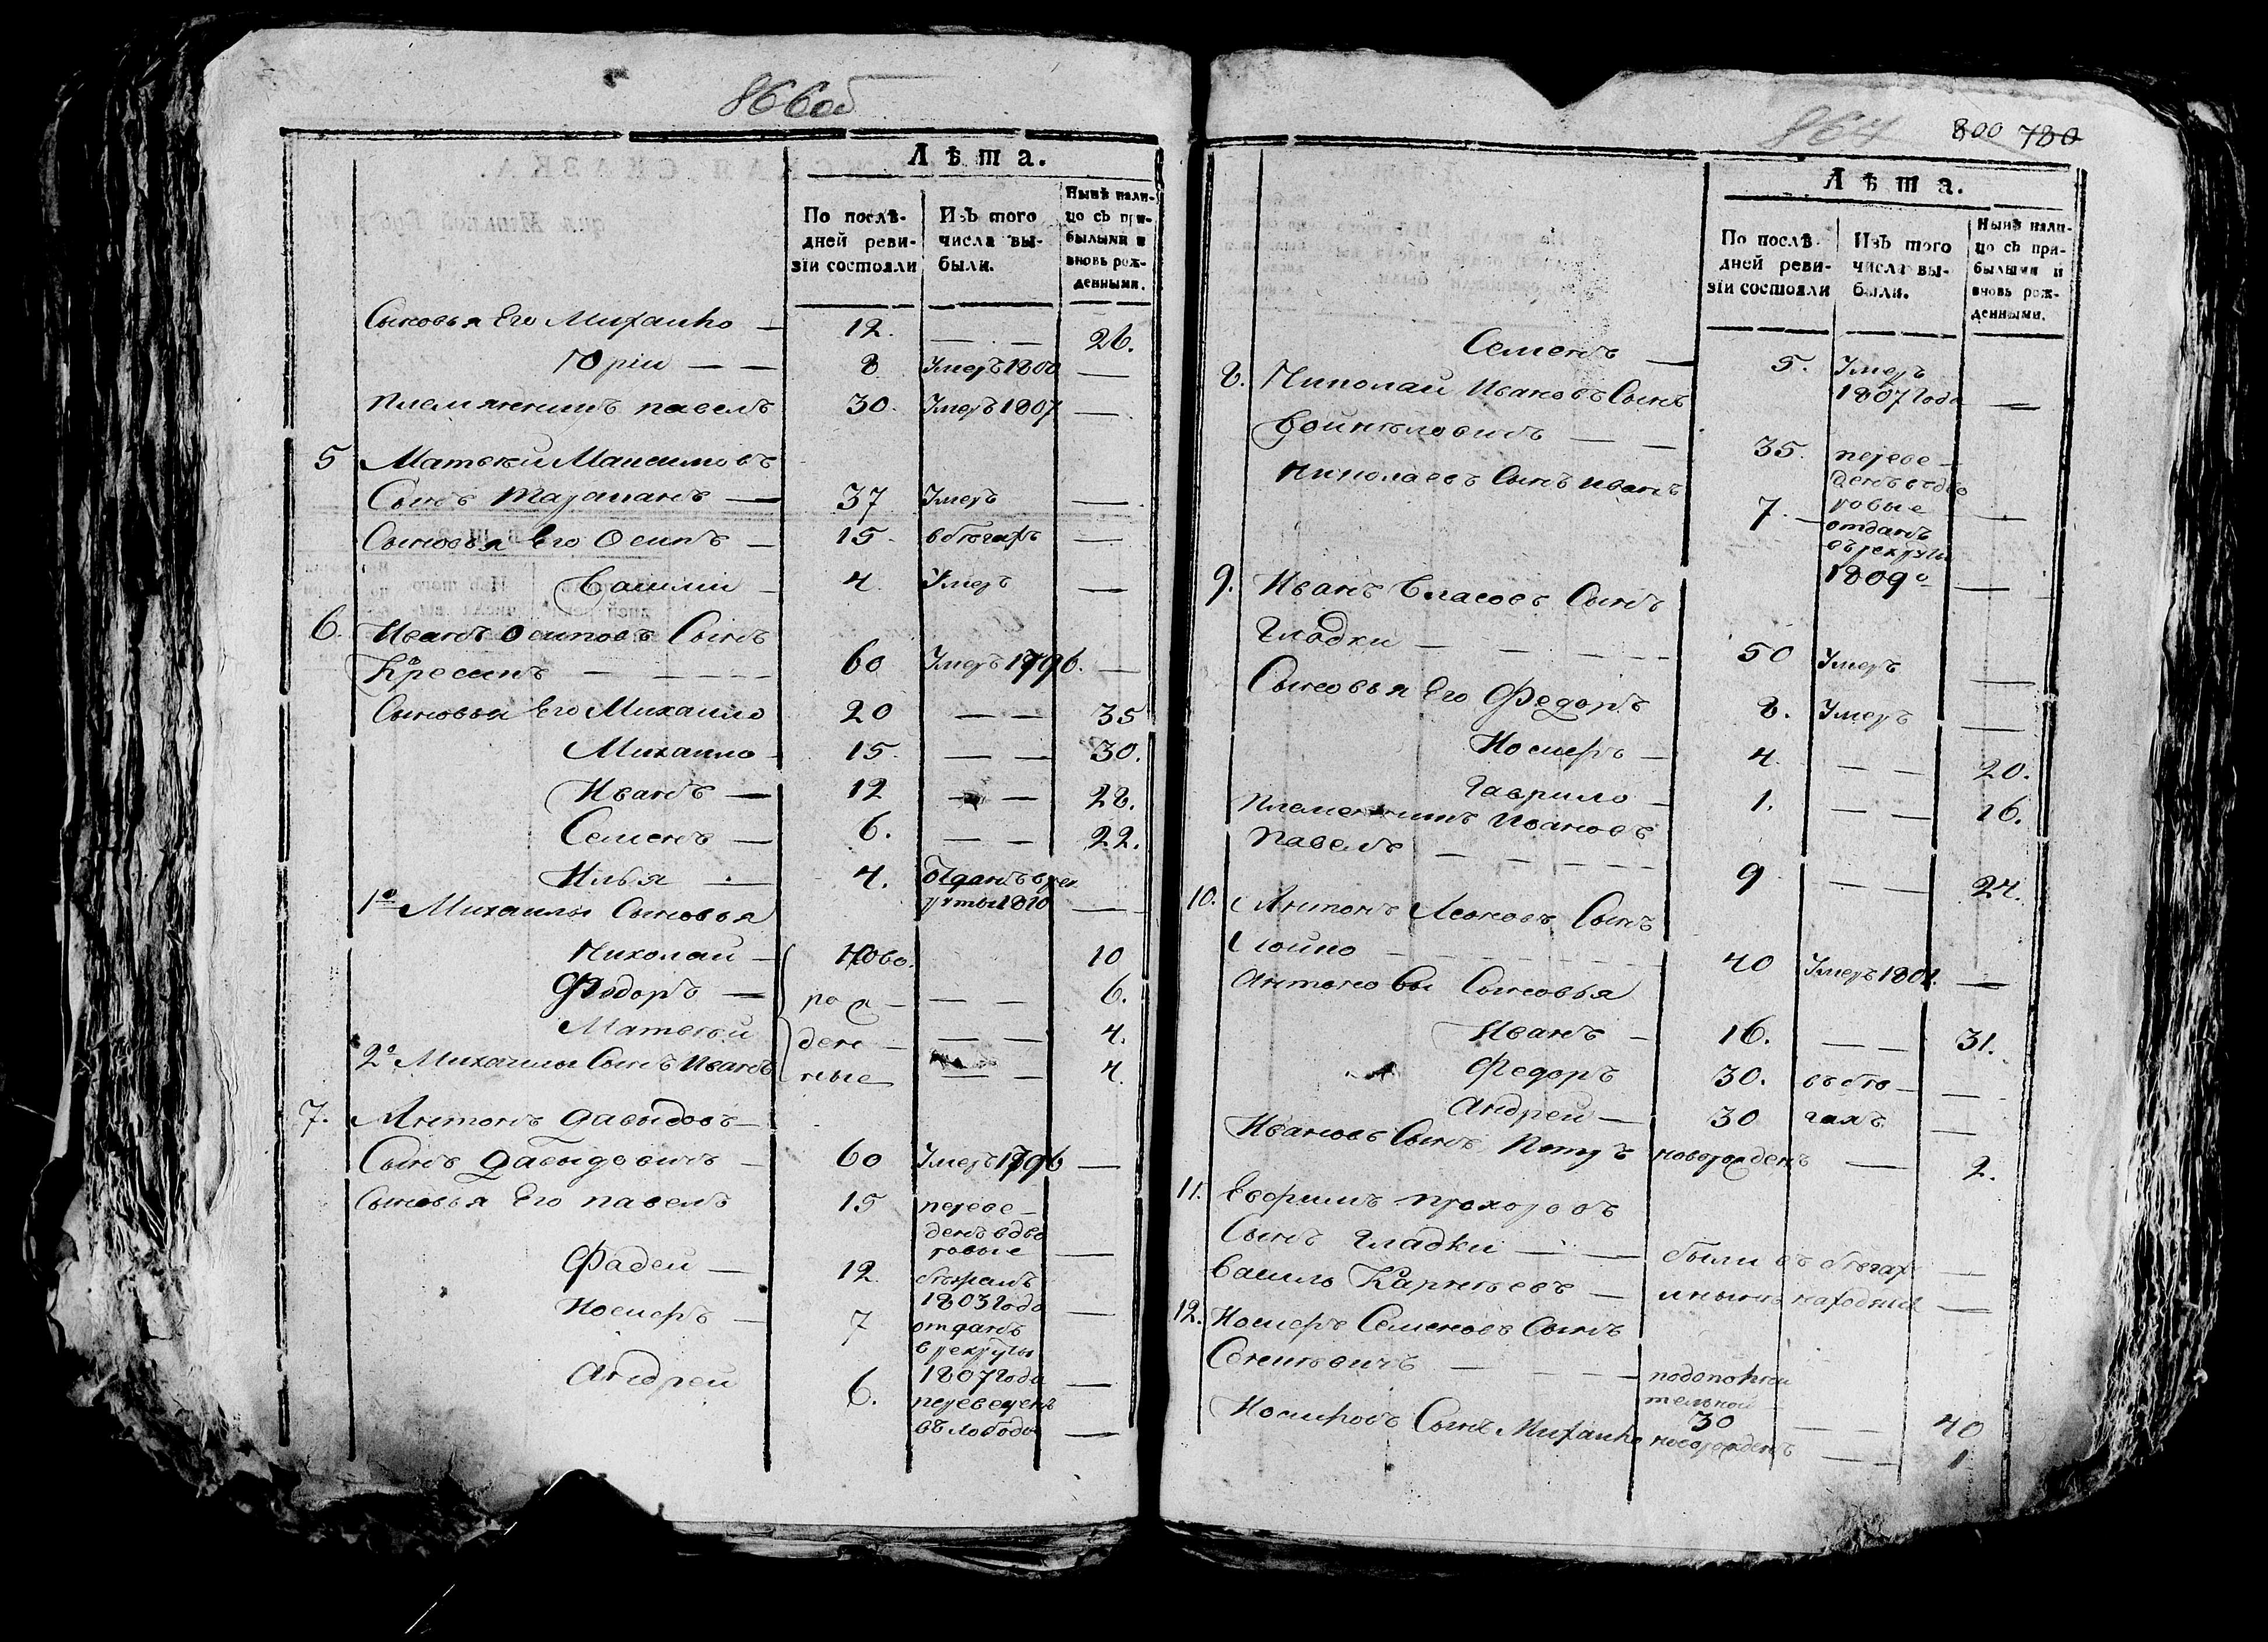 866об
Лѣта.
По послѣ-
дней реви-
зіи состояли
Изъ того
числа вы-
были.
Нынѣ нали-
цо съ при-
былыми и
вновь рож-
денными.
Сыновья Его Михайло — 12. — — 26.
Юріи — — 8 Умеръ 1808 —
племянникъ павелъ 30. Умеръ 1807 —
5 Матвѣи Максимовъ
Сынъ — 37 Умеръ —
Сыновья Его Осипъ — 15. вбѣгахъ —
Василіи — 4. Умеръ —
6. Иванъ Осиповъ Сынъ
— — — 60 Умеръ 1796. —
Сыновья Его Михаило 20 — — 35
Михаило — 15. — — 30.
Иванъ — 12 — — 28.
Семенъ — 6. — — 22.
Илья — 4. Отданъ врек
руты 1810 —
1го Михаилы Сыновья
Николай — Ново 10
Федоръ — рож — — 6.
Матвѣй ден — — 4.
2го Михаилы Сынъ Иванъ ные — — 4.
7. Антонъ Давыдовъ —
Сынъ Давыдовичъ — 60 Умеръ 1796 —
Сыновья Его павелъ 15 переве-
денъ вдво
ровые —
Фадеи — 12 бѣжалъ
1803 года —
Иосифъ — 7 отданъ
врекруты
1807 года —
Андреи 6. переведенъ
въ слободу —
864 800 780
Лѣта.
По послѣ-
дней реви-
зіи состояли
Изъ того
числа вы-
были.
Нынѣ нали-
цо съ при-
былыми и
вновь рож-
денными.
Семенъ — 5. Умеръ
1807 года —
8. Николай Ивановъ Сынъ
— — 35. переве-
денъ вдво
ровые —
Николаевъ Сынъ Иванъ 7. — отданъ
въ рекруты
1809го —
9. Иванъ Власовъ Сынъ
Гладки — — — 50 Умеръ —
Сыновья Его Федоръ 8. Умеръ —
Иосифъ — 4. — — 20.
Гаврило — 1. — — 16.
племенникъ Ивановъ
Павелъ — — — 9 — — 24.
10. Антонъ Леоновъ Сынъ
— — — 40 Умеръ 1801. —
Антоновы Сыновья
Иванъ — 16. — — 31.
Федоръ 30. въ бѣ- —
Андреи — 30 гахъ —
Ивановъ Сынъ Петръ новорожденъ — 2.
11. Ефримъ прохоровъ
Сынъ Гладки — — были въ бѣгах —
Василь Карнѣевъ — —
12. Иосифъ Семеновъ Сынъ
— — — подополни
тельной
30 — — 40
Иосифовъ Сынъ Михайло новорожденъ — 1